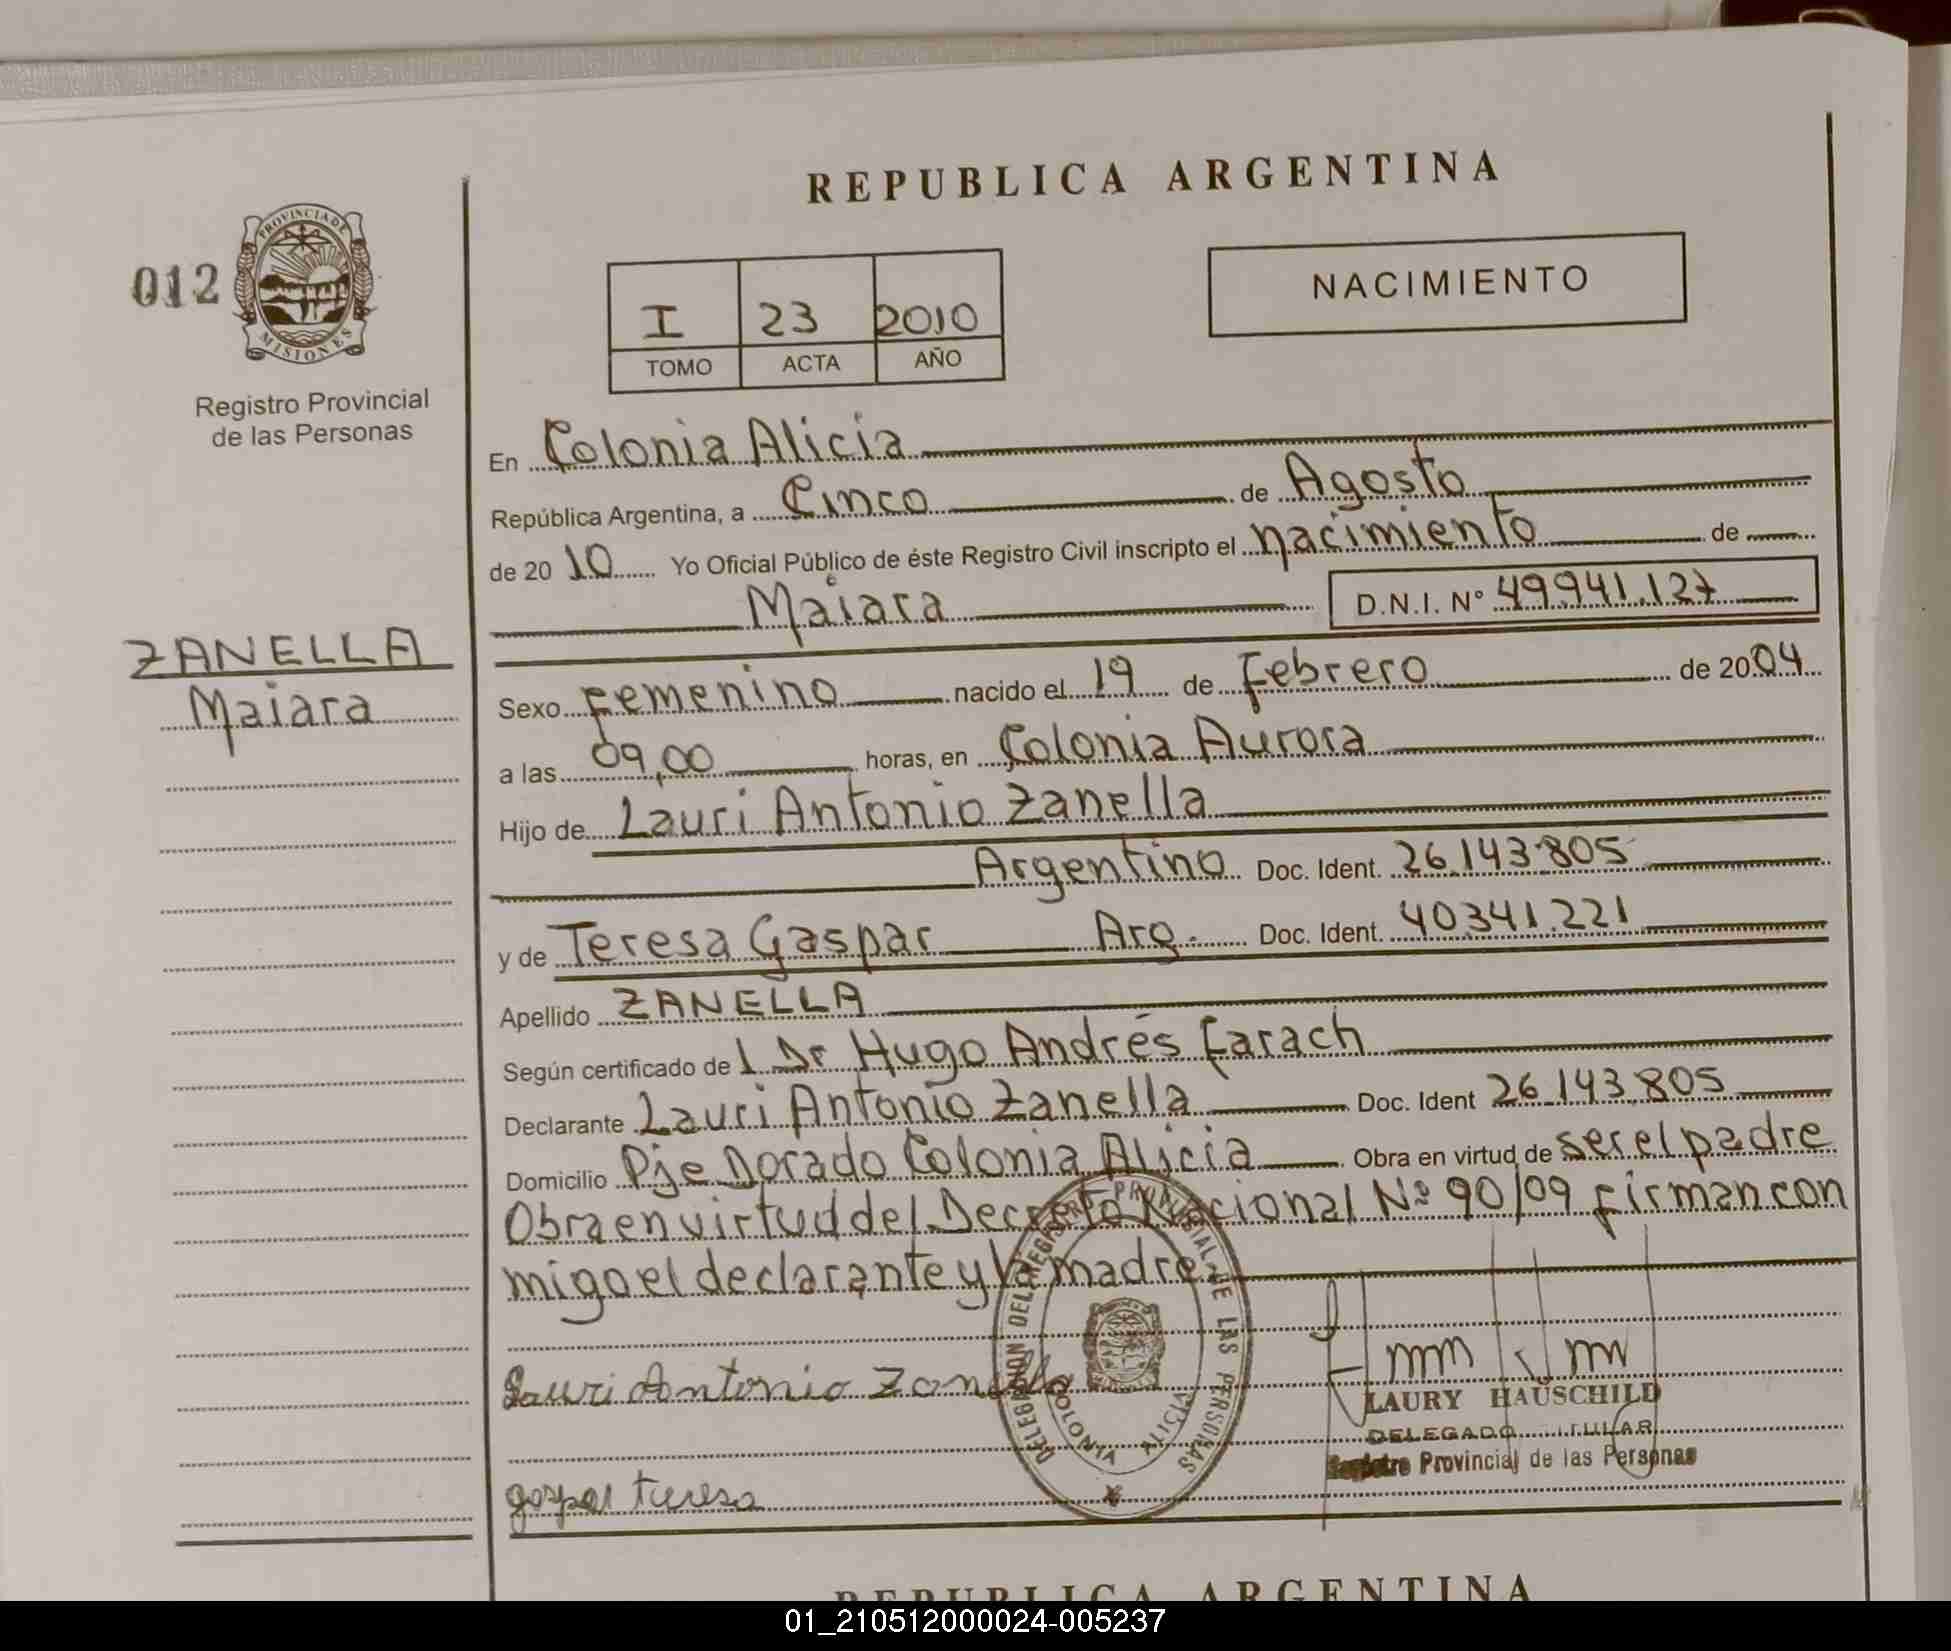 REPUBLICA ARGENTINA
012
PROVINCIA DE
MISIONES
Registro Provincial
de las Personas
I 23 2010
TOMO ACTA AÑO
NACIMIENTO
ZANELLA
Maiara
En Colonia Alicia
República Argentina, a Cinco de Agosto
de 2010 Yo Oficial Público de éste Registro Civil inscripto el nacimiento de
Maiara D.N.I. Nº 49.941.127
Sexo Femenino nacido el 19 de Febrero de 2004
a las 09,00 horas, en Colonia Aurora
Hijo de Lauri Antonio Zanella
Argentino Doc. Ident. 26.143.805
y de Teresa Gaspar Arg. Doc. Ident. 40.341.221
Apellido ZANELLA
Según certificado de l Dr Hugo Andrés Farach
Declarante Lauri Antonio Zanella Doc. Ident 26.143.805
Domicilio Pje Dorado Colonia Alicia Obra en virtud de ser el padre
Obra en virtud del Decreto Nacional Nº 90/09 firman con
migo el declarante y la madre
Lauri Antonio Zanella
gaspar teresa
DELEGACION DEL REGISTRO PROVINCIAL DE LAS PERSONAS
COLONIA ALICIA
LAURY HAUSCHILD
DELEGADO TITULAR
Registro Provincial de las Personas
REPUBLICA ARGENTINA
01_210512000024-005237